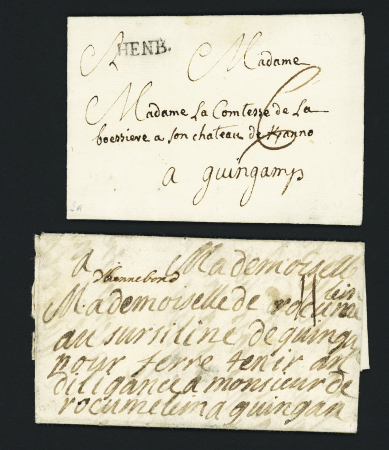 A Madame
HENB.
Madame La Comtesse de La
boessiere a son chateau de Kanno
a guingamp
a Mademoiselle
d'hennebond
Mademoiselle de
au sursiline de guinga
pour ferre tenir an
diligance a monsieur de
rocumelin a guingan